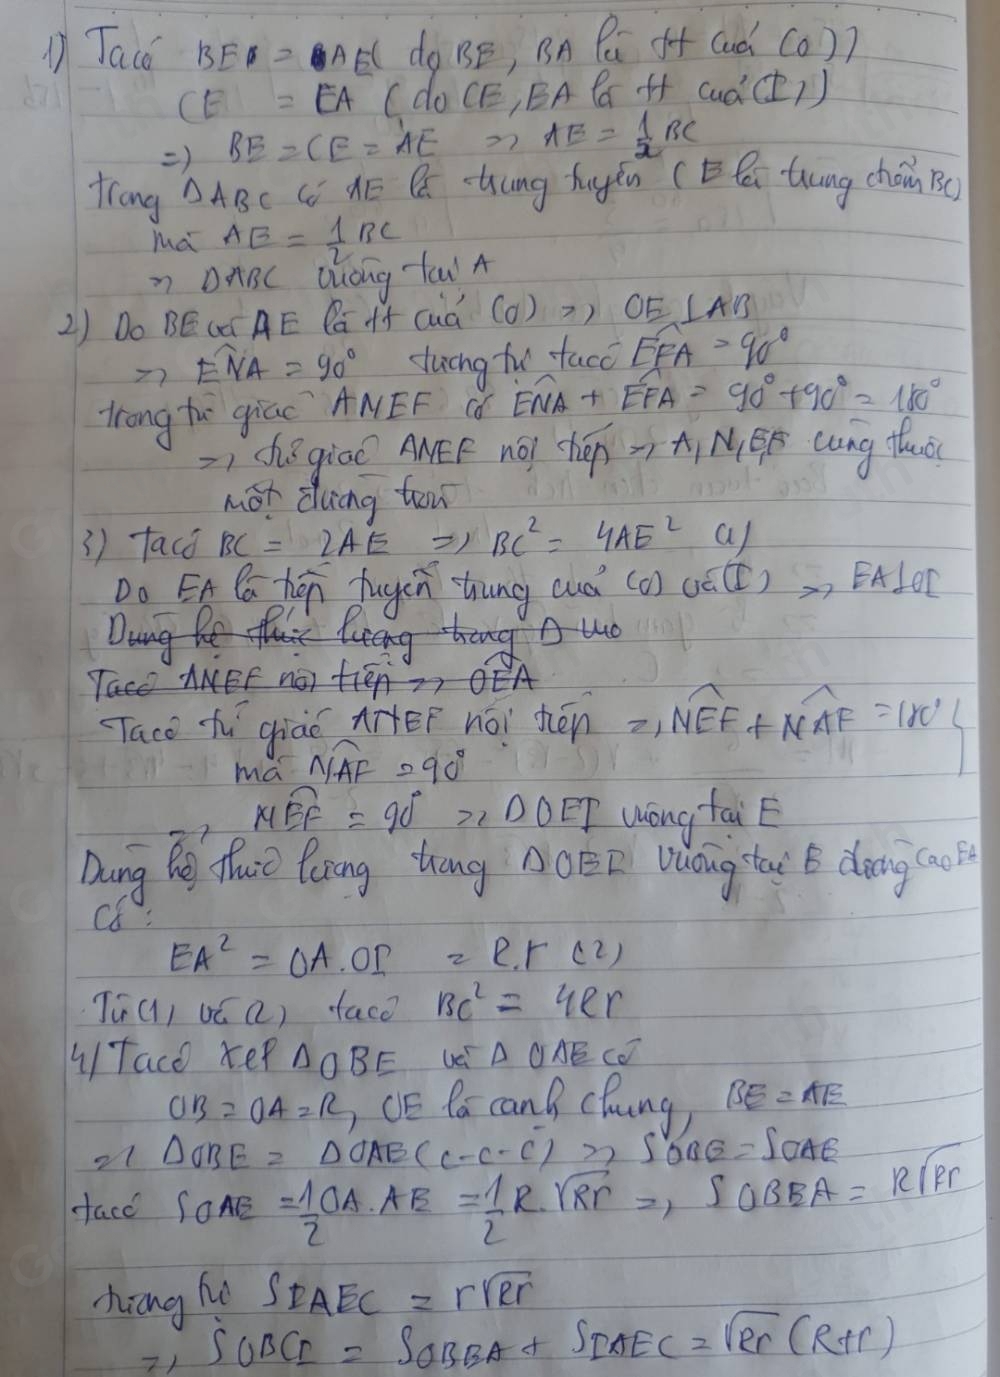 1) Ta có BE = AE ( do BE, BA là tt cuả (O))
CE = EA ( do CE, EA là tt cuả (I))
=> BE = CE = AE => AE = 1/2 BC
trong ΔABC có AE là trung tuyến ( E là trung điểm BC)
mà AE = 1/2 BC
=> ΔABC vuông tại A
2) Do BE và AE là tt cuả (O) => OE ⊥ AB
=> ENA = 90° tương tự ta có EFA = 90°
trong tứ giác ANEF có ENA + EFA = 90° + 90° = 180°
=> tứ giác ANEF nội tiếp => A, N, E, F cùng thuộc
một đường tròn
3) Ta có BC = 2AE => BC² = 4AE² (1)
Do EA là tiếp tuyến trung cuả (O) và (I) => EA ⊥ OI
Dung hệ thức lượng trong Δ
Ta có ANEF nội tiếp => OEA
Ta có tứ giác ANEF nội tiếp => NEF + NAF = 180°
mà NAF = 90°
=> NEF = 90° => ΔOEI vuông tại E
Dung hệ thức lượng trong ΔOEI vuông tại E đường cao EA
Có :
EA² = OA.OI = R.r (2)
Từ (1) và (2) ta có BC² = 4Rr
4) Ta có xét ΔOBE và ΔOAE có
OB = OA = R, OE là cạnh chung, BE = AE
=> ΔOBE = ΔOAE (c-c-c) => SOBE = SOAE
ta có SOAE = 1/2 OA.AE = 1/2 R.√Rr => SOBEA = R√Rr
tương tự SIAEC = r√Rr
=> SOBCI = SOBEA + SIAEC = √Rr (R+r)